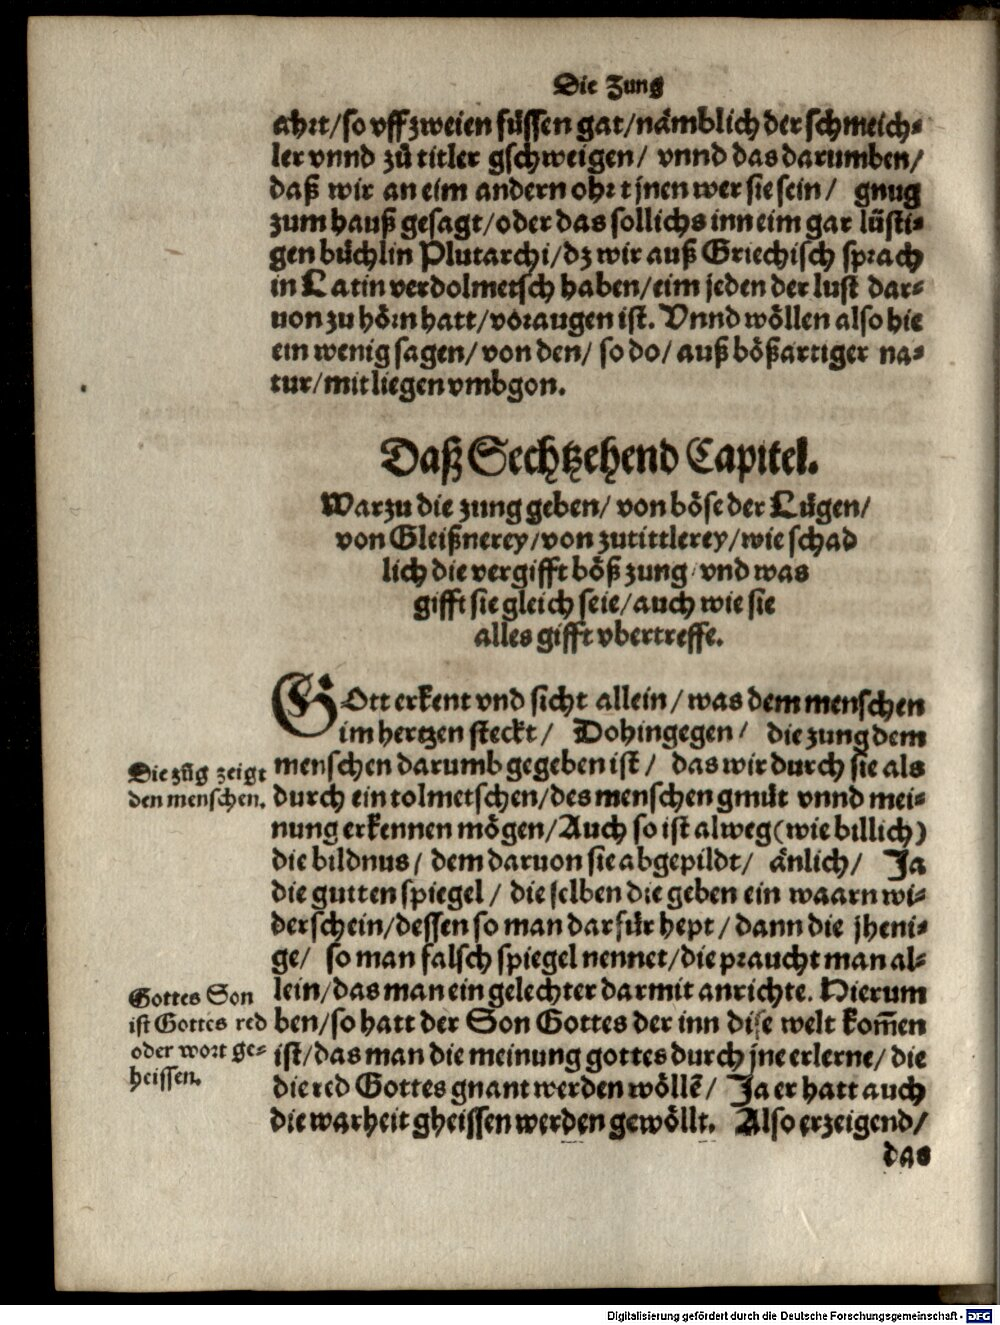 Die Zung
ahrt/so vff zweien füssen gat/nämblich der schmeich⸗
ler vnnd zů titler gschweigen/ vnnd das darumben/
daß wir an eim andern ohrt jnen wer sie sein/ gnug
zum hauß gesagt/oder das sollichs inn eim gar lüsti⸗
gen büchlin Plutarchi/dz wir auß Griechisch sprach
in Latin verdolmetsch haben/eim jeden der lust dar⸗
uon zu hörn hatt/vor augen ist. Vnnd wöllen also hie
ein wenig sagen/ von den/ so do/ auß bößartiger na⸗
tur/mit liegen vmbgon.
Daß Sechtzehend Capitel.
Warzu die zung geben/ von böse der Lügen/
von Gleißnerey/von zutittlerey/wie schad
lich die vergifft böß zung/vnd was
gifft sie gleich seie/auch wie sie
alles gifft vbertreffe.
GOtt erkent vnd sicht allein/was dem menschen
im hertzen steckt/ Dohingegen/ die zung dem
Die zũg zeigt
den menschen.
menschen darumb gegeben ist/ das wir durch sie als
durch ein tolmetschen/des menschen gmüt vnnd mei⸗
nung erkennen mögen/Auch so ist alweg(wie billich)
die bildnus/ dem daruon sie abgepildt/ änlich/ Ja
die gutten spiegel/ die selben die geben ein waarn wi⸗
derschein/dessen so man darfür hept/dann die jheni⸗
ge/ so man falsch spiegel nennet/die praucht man al⸗
lein/das man ein gelechter darmit anrichte. Hierum
Gottes Son
ist Gottes red
oder wort ge⸗
heissen.
ben/so hatt der Son Gottes der inn dise welt kom̃en
ist/das man die meinung gottes durch jne erlerne/die
die red Gottes gnant werden wöllẽ/ Ja er hatt auch
die warheit gheissen werden gewöllt. Also erzeigend/
das
Digitalisierung gefördert durch die Deutsche Forschungsgemeinschaft - DFG